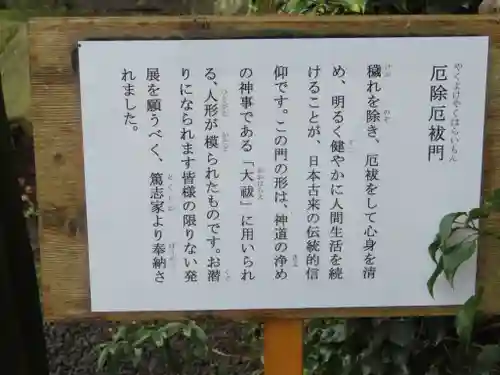 厄除厄祓門
やくよけやくはらいもん
穢れを除き、厄祓をして心身を清
め、明るく健やかに人間生活を続
けることが、日本古来の伝統的信
仰です。この門の形は、神道の浄め
の神事である「大祓」に用いられ
る、人形が模られたものです。お潜
りになられます皆様の限りない発
展を願うべく、篤志家より奉納さ
れました。